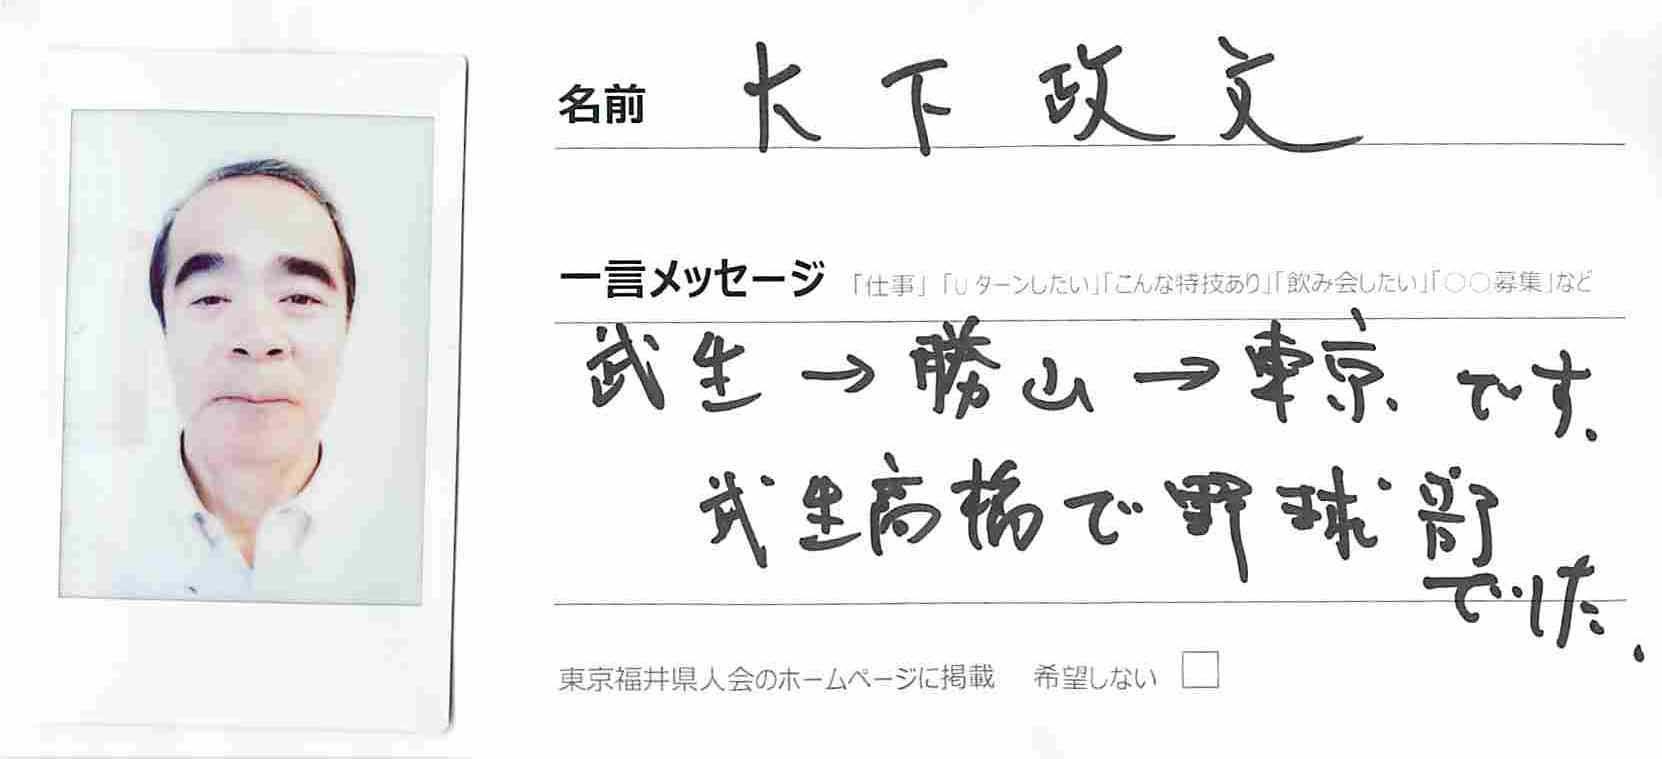 名前 木下政文
一言メッセージ 「仕事」「Uターンしたい」「こんな特技あり」「飲み会したい」「○○募集」など
武生→勝山→東京.です.
武生高校で野球部
でした.
東京福井県人会のホームページに掲載 希望しない □